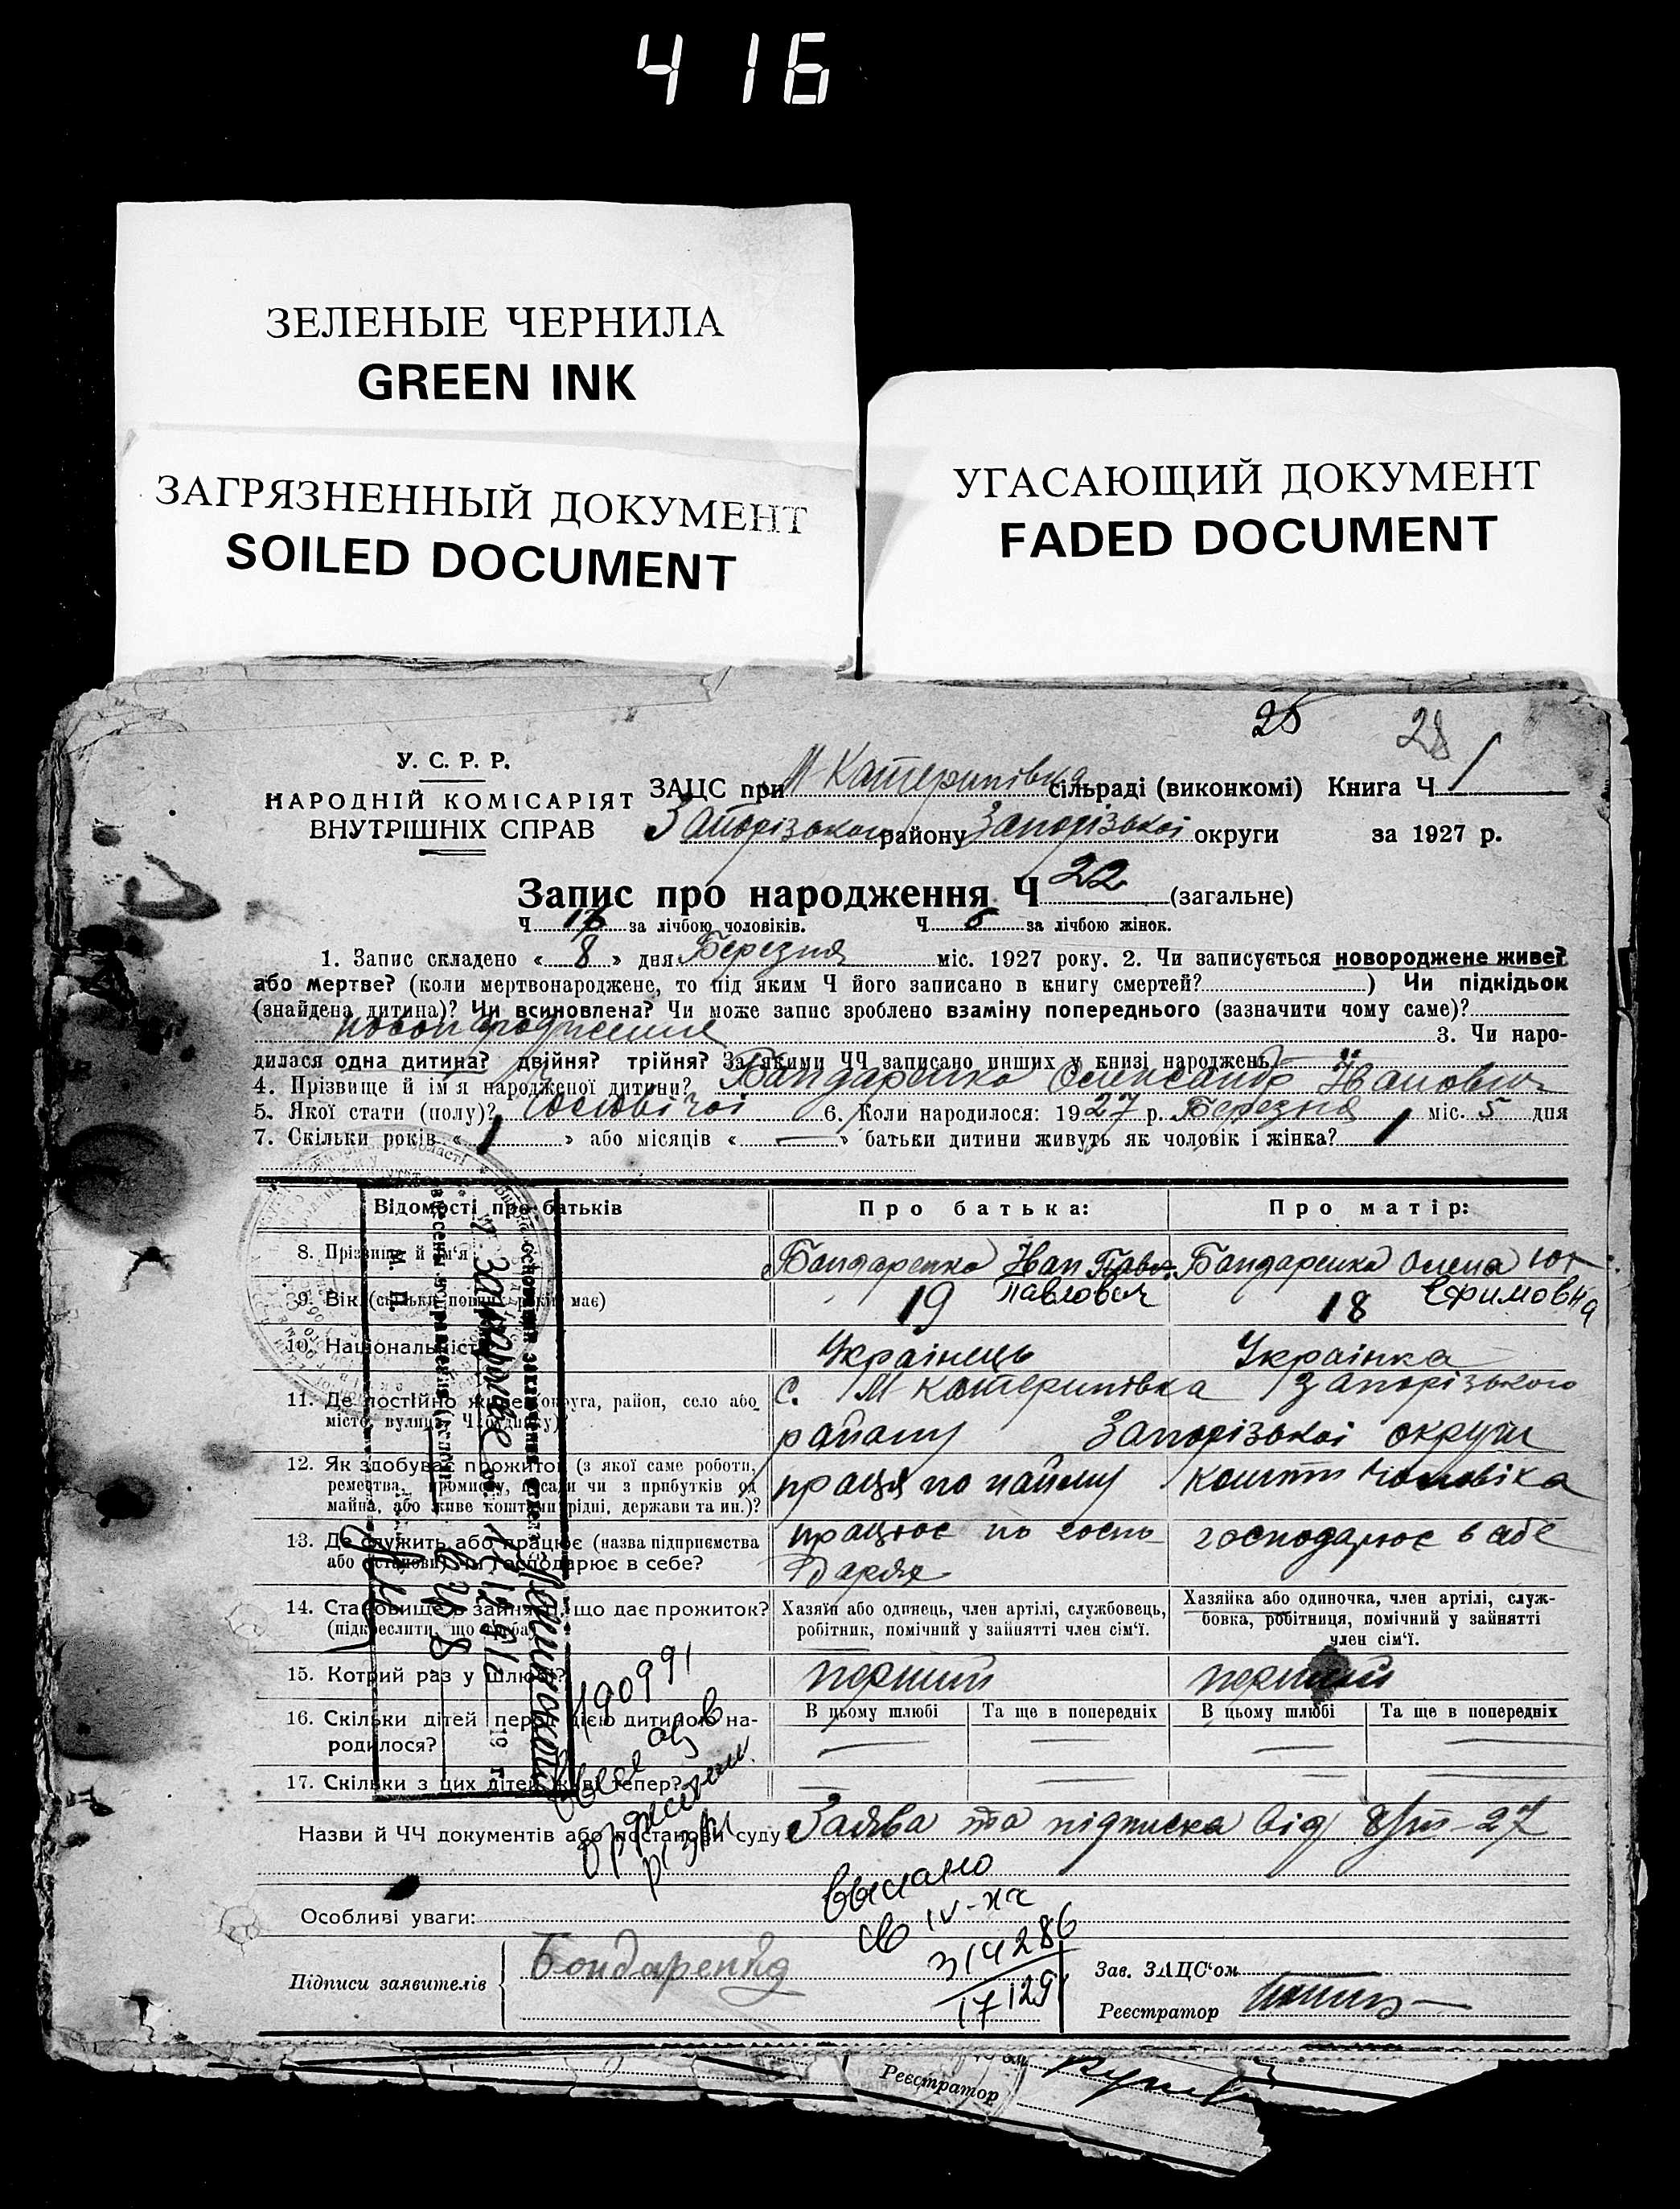 416
ЗЕЛЕНЫЕ ЧЕРНИЛА
GREEN INK
ЗАГРЯЗНЕННЫЙ ДОКУМЕНТ
SOILED DOCUMENT
УГАСАЮЩИЙ ДОКУМЕНТ
FADED DOCUMENT
25 28
У. С. Р. Р.
НАРОДНІЙ КОМІСАРІЯТ
ВНУТРІШНІХ СПРАВ
ЗАЦС при М Катеринівка сільраді (виконкомі) Книга Ч 1
Запорізького району Запорізької округи за 1927 р.
Запис про народження Ч 22 (загальне)
Ч за лічбою чоловіків. Ч за лічбою жінок.
1. Запис складено « 8 » дня Березня міс. 1927 року. 2. Чи записується новороджене живе?
або мертве? (коли мертвонароджене, то під яким Ч його записано в книгу смертей? ) Чи підкідьок
(знайдена дитина)? Чи всиновлена? Чи може запис зроблено взаміну попереднього (зазначити чому саме)?
3. Чи наро-
дилася одна дитина? двійня? трійня? За якими ЧЧ записано инших у книзі народжень?
4. Прізвище й ім'я народженої дитини? Бандаренко Олександр Іванович
5. Якої стати (полу)? 6. Коли народилося: 1927 р. Березня міс. 5 дня
7. Скільки років « 1 » або місяців « — » батьки дитини живуть як чоловік і жінка? 1
Відомості про батьків
Про батька:
Про матір:
8. Прізвище й ім'я
Бандаренко Іван Павл.
Бандаренко Олена Юх
9. Вік (скільки повних років має)
19 Павлович
18 Ефимовна
10. Національність
Українець
Українка
11. Де постійно живе (округа, район, село або
місто, вулиця, Ч будинку)?
с. М Катеринівка Запорізького
району Запорізької округи
12. Як здобуває прожиток (з якої саме роботи,
ремества, промислу, посади чи з прибутків од
майна, або живе коштами рідні, держави та ин.)?
праця по найму
кошти чоловіка
13. Де служить або працює (назва підприємства
або установи) чи господарює в себе?
працює по госпо-
дарях
господарює в себе
14. Становище в занятті, що дає прожиток?
(підкреслити, що треба)
Хазяїн або одинець, член артілі, службовець,
робітник, помічний у зайнятті член сім'ї.
Хазяйка або одиночка, член артілі, служ-
бовка, робітниця, помічний у зайнятті
член сім'ї.
15. Котрий раз у шлюбі?
перший
перший
16. Скільки дітей перед цією дитиною на-
родилося?
В цьому шлюбі Та ще в попередніх
В цьому шлюбі Та ще в попередніх
17. Скільки з цих дітей живі тепер?
Назви й ЧЧ документів або постанови суду Заява та підписка від 8/III-27
Особливі уваги:
Підписи заявителів
Бондаренко
Зав. ЗАЦС'ом
Реєстратор
выдано
св IV-
314286
17 129
190991
М. П.
19 г.
Реєстратор